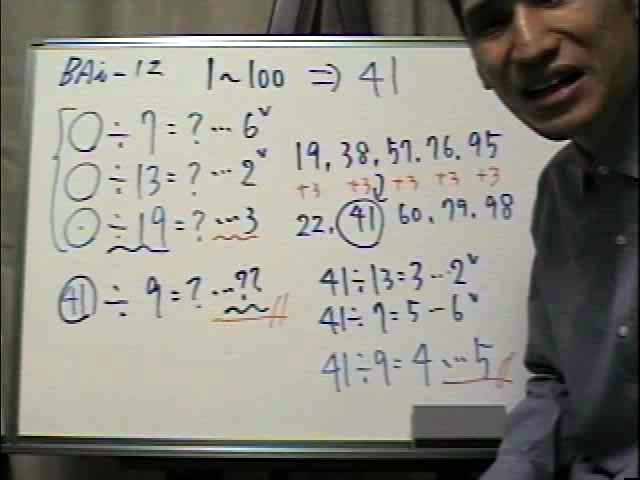 BAi-12 1~100 ⇒ 41
○÷7=?…6✓
○÷13=?…2✓
○÷19=?…3
41÷9=?…??
19, 38, 57, 76, 95
+3 +3 +3 +3 +3
22, 41 60, 79, 98
41÷13=3…2✓
41÷7=5…6✓
41÷9=4…5